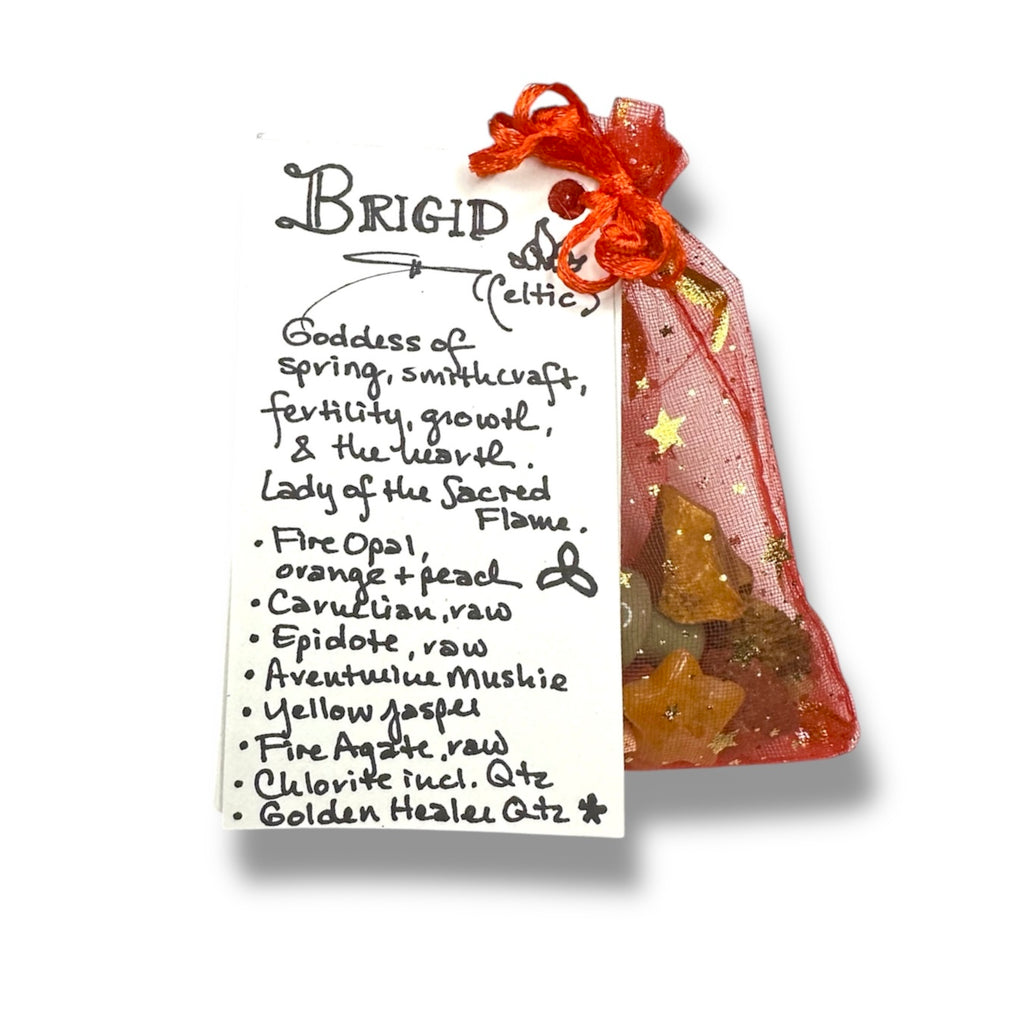 BRIGID
(Celtic)
Goddess of
spring, smithcraft,
fertility, growth,
& the hearth.
Lady of the Sacred
Flame.
• Fire Opal,
orange + peach
• Carnelian, raw
• Epidote, raw
• Aventurine Mushie
• Yellow Jasper
• Fire Agate, raw
• Chlorite incl. Qtz
• Golden Healer Qtz *